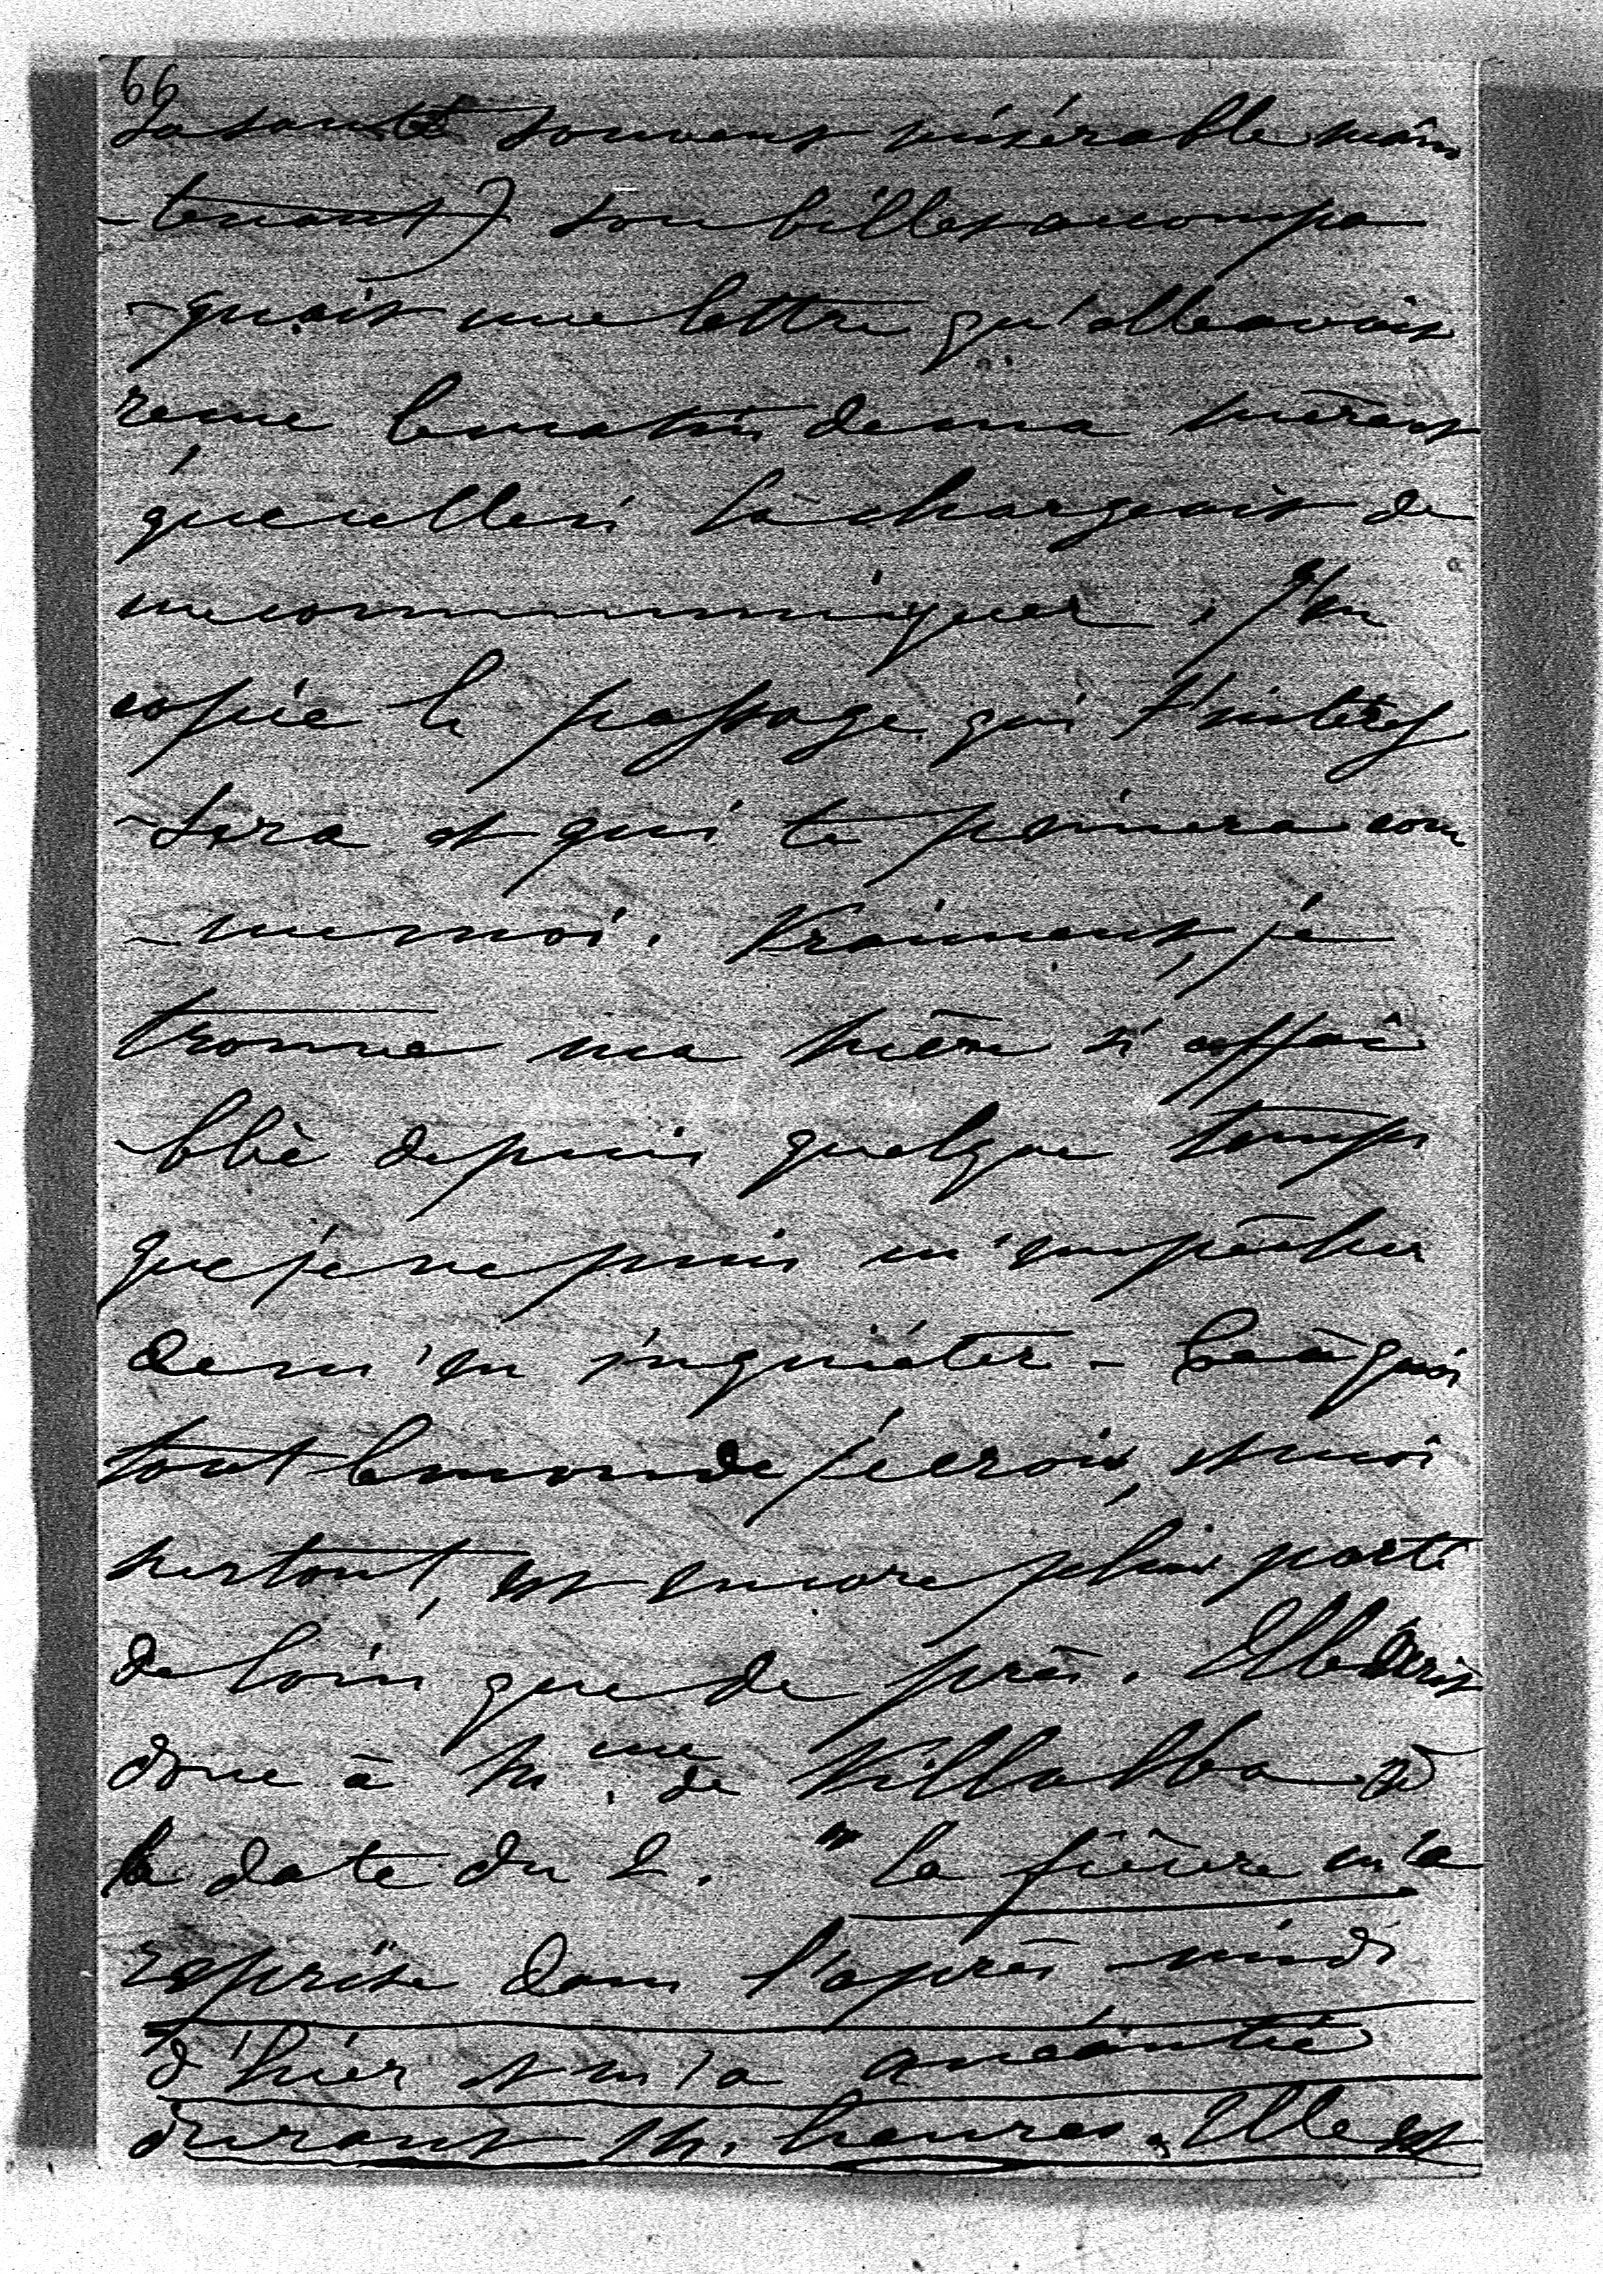 66
sa santé souvent misérable main
-tenant) son billet accompa
-gnait une lettre qu'elle avait
reçue le matin de ma mère et
que celle ci la chargeait de
me communiquer. J'en
copie le passage qui t'intéres
-sera et qui te peinera com
-me moi. Vraiment, je
trouve ma mère si affai
-blie depuis quelque temps
que je ne puis m'empêcher
de m'en inquiéter - Ce à quoi
tout le monde je crois, et moi
surtout, est encore plus porté
de loin que de près. Elle écrit
donc à Mme de Villalba à
la date du 2. "la fièvre m'a
reprise dans l'après-midi
d'hier et m'a anéantie
durant 14 heures. Elle est